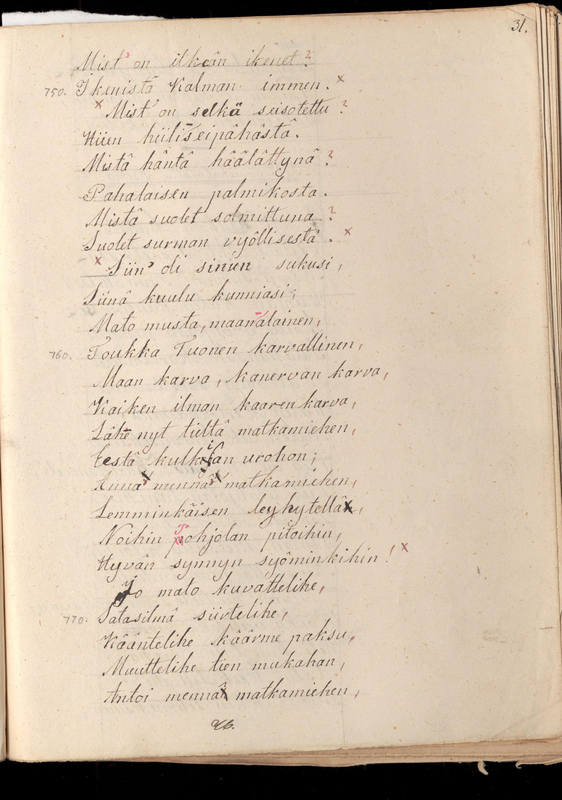 31.
Mist' on ilkeän ikenet?
750. Ikenistä Kalman immen.
Mist' on selkä seisotettu?
Hiien hiiliseipähästä.
Mistä häntä häälättynä?
Pahalaisen palmikosta.
Mistä suolet solmittuna?
Suolet surman vyöllisestä.
Siin' oli sinun sukusi,
Siinä kuulu kunniasi;
Mato musta, maan-alainen,
760. Toukka Tuonen karvallinen,
Maan karva, kanervan karva,
Kaiken ilman kaaren karva,
Lähe nyt tieltä matkamiehen,
Eestä kulkian urohon;
Anna mennä matkamiehen,
Lemminkäisen leyhytellä,
Noihin Pohjolan pitoihin,
Hyvän synnyn syöminkihin!
Jo mato kuvattelihe,
770. Satasilmä siirtelihe,
Kääntelihe käärme paksu,
Muuttelihe tien mukahan,
Antoi mennä matkamiehen,